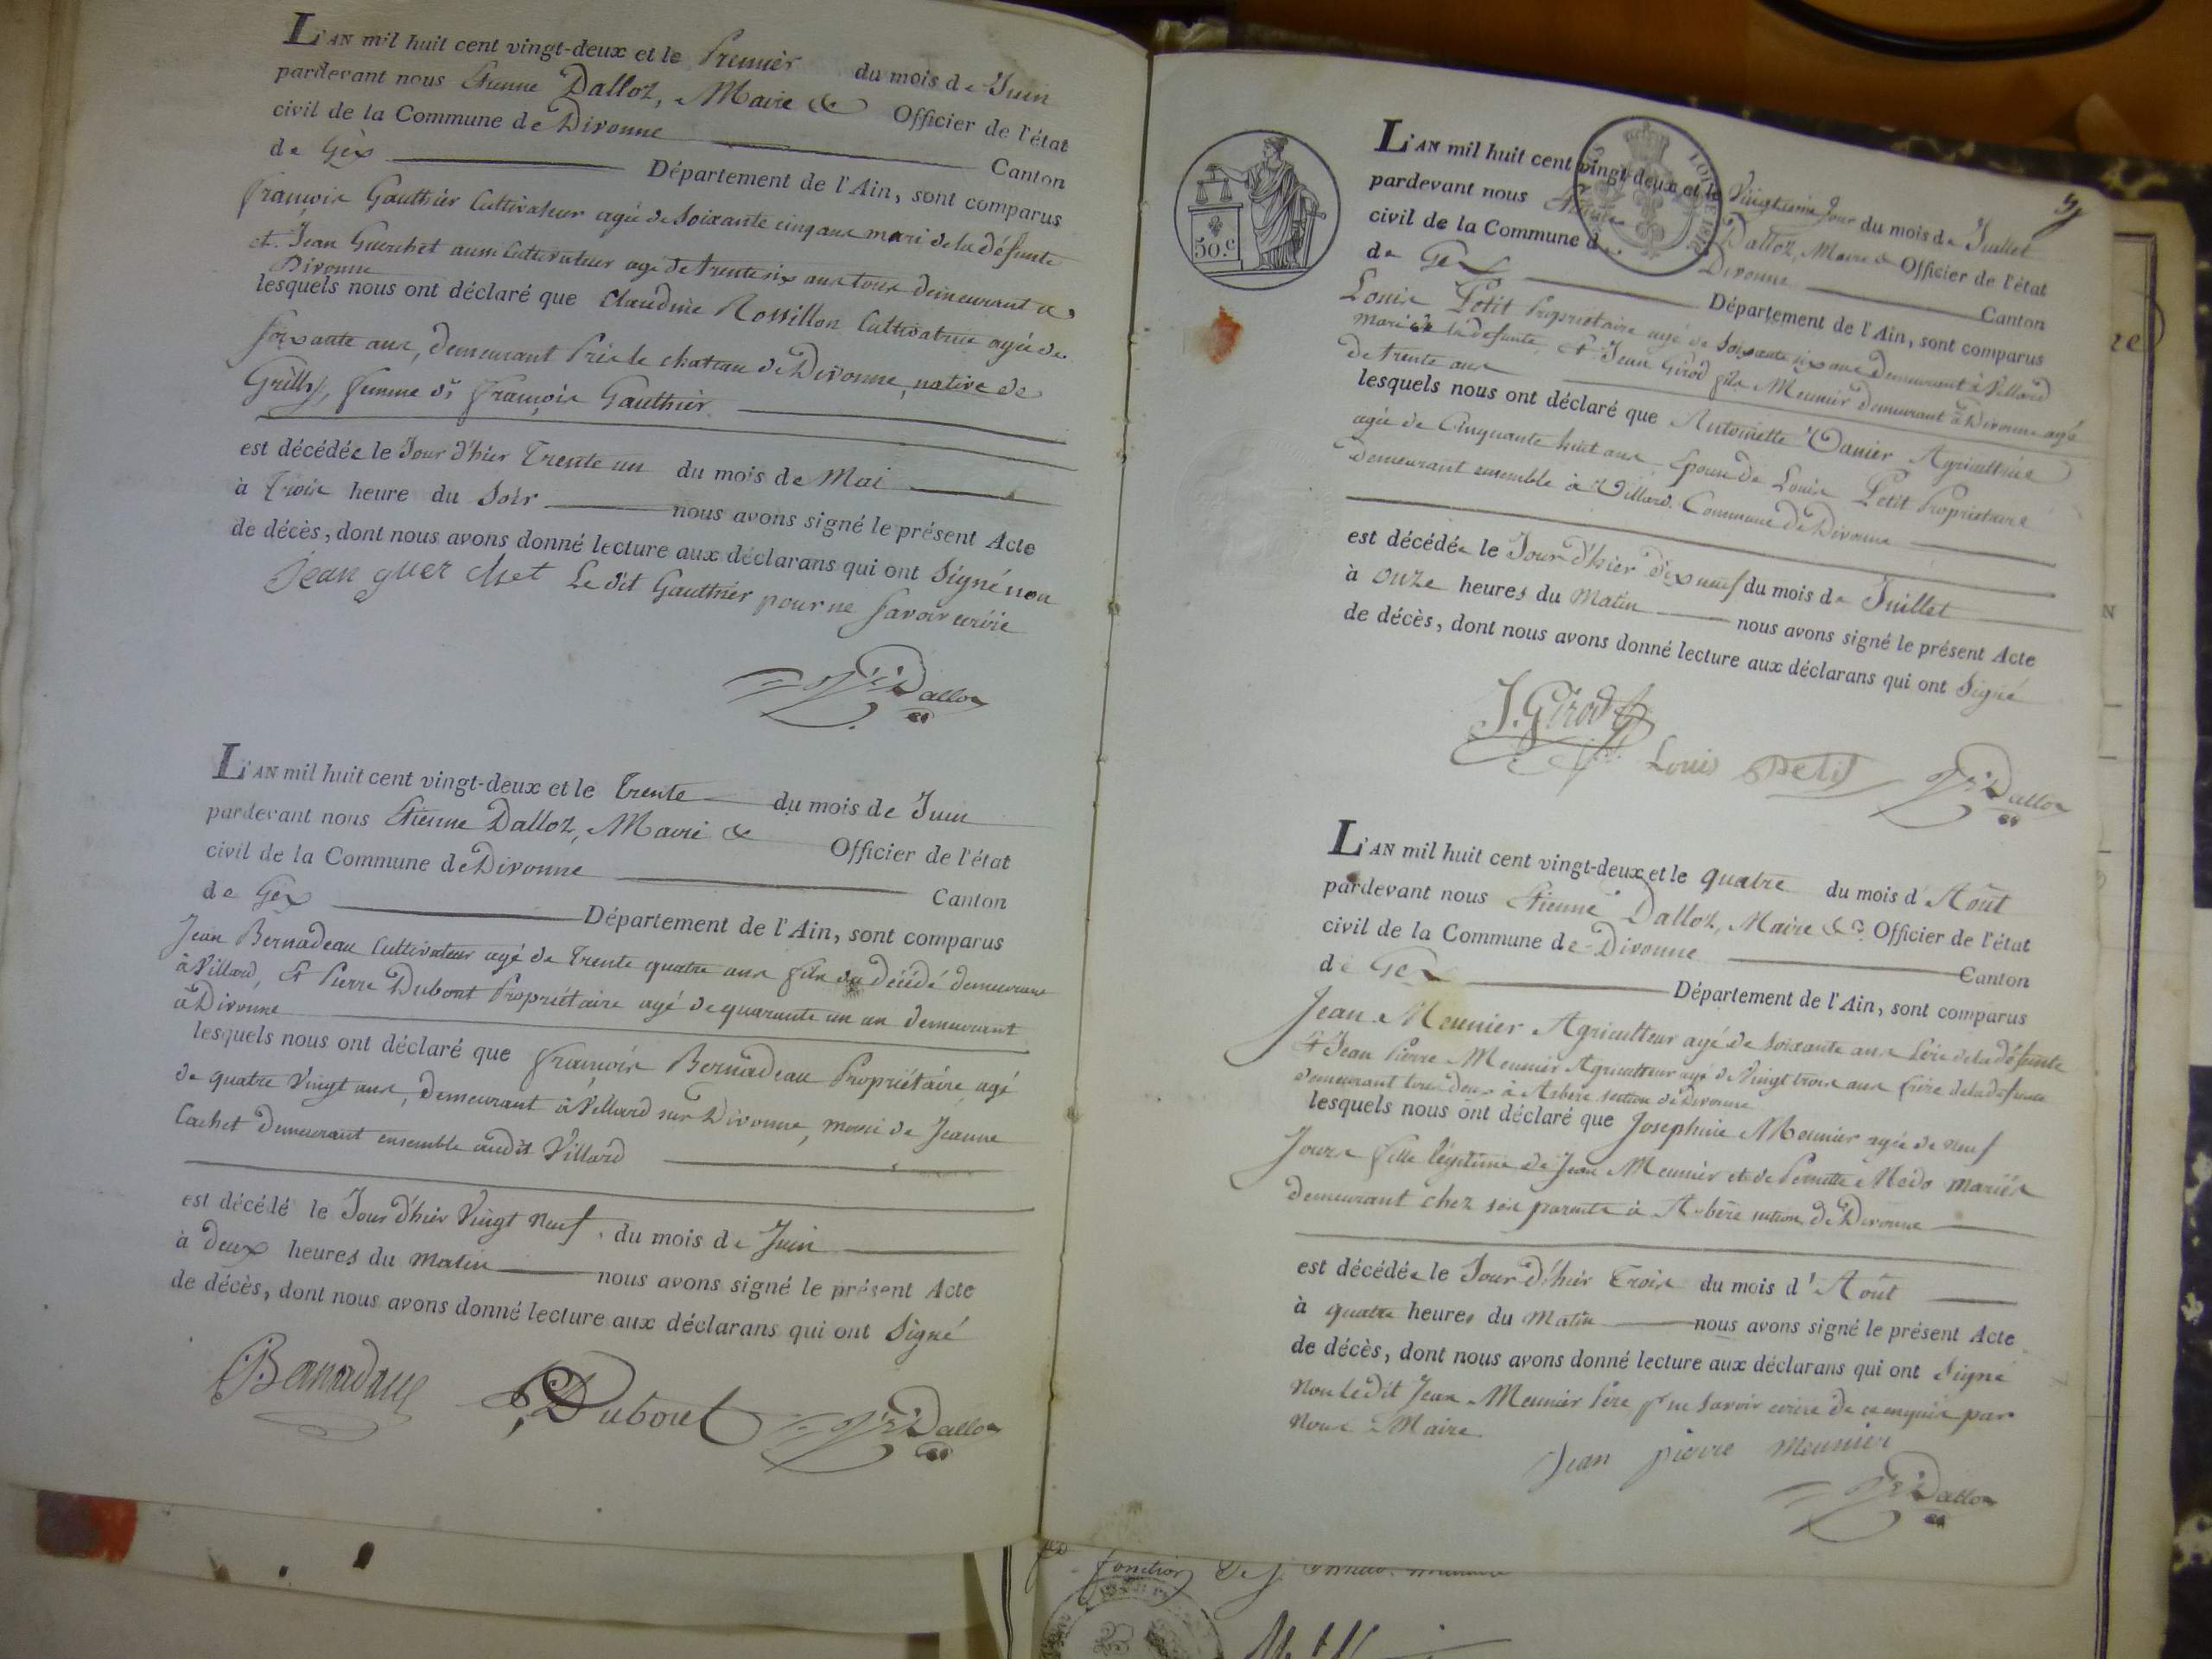 L'AN mil huit cent vingt-deux et le Premier du mois de Juin
pardevant nous Etienne Dalloz, Maire & Officier de l'état
civil de la Commune de Divonne Canton
de Gex Département de l'Ain, sont comparus
François Gauthier Cultivateur agé de Soixante cinq ans mari de la défunte
et Jean Guerchet aussi Cultivateur agé de trente six ans tous demeurant a
Divonne
lesquels nous ont déclaré que Claudine Rossillon Cultivatrice agée de
soixante ans, demeurant Près le chateau de Divonne, native de
Grilly, femme dt françois Gauthier
est décédée le Jour d'hier Trente un du mois de Mai
à Trois heure du Soir nous avons signé le présent Acte
de décès, dont nous avons donné lecture aux déclarans qui ont Signé non
Jean guer chet Le dit Gauthier pour ne savoir écrire
Dalloz
L'AN mil huit cent vingt-deux et le Trente du mois de Juin
pardevant nous Etienne Dalloz, Maire & Officier de l'état
civil de la Commune de Divonne Canton
de Gex Département de l'Ain, sont comparus
Jean Bernadeau Cultivateur agé de Trente quatre ans fils du décédé demeurant
à Villard, et Pierre Dubout Propriétaire agé de quarante un an demeurant
à Divonne
lesquels nous ont déclaré que françois Bernadeau Propriétaire, agé
de quatre Vingt ans, demeurant à Villard sur Divonne, mari de Jeanne
Cachet demeurant ensemble audit Villard
est décédé le Jour d'hier Vingt Neuf du mois de Juin
à deux heures du matin nous avons signé le présent Acte
de décès, dont nous avons donné lecture aux déclarans qui ont Signé
Dubout Dalloz
L'AN mil huit cent vingt-deux et le Vingtieme Jour du mois de Juillet
pardevant nous Etienne Dalloz, Maire & Officier de l'état
civil de la Commune de Divonne
de Gex Canton
Département de l'Ain, sont comparus
Louis Petit Propriétaire agé de Soixante six ans Demeurant à Villard
mari de la défunte, et Jean Girod fils Meunier demeurant à Divonne agé
de trente ans
lesquels nous ont déclaré que Antoinette Vanier Agricultrice
agée de Cinquante huit ans, Epouse de Louis Petit Propriétaire
demeurant ensemble à Villard. Commune de Divonne
est décédée le Jour d'hier dix neuf du mois de Juillet
à onze heures du matin nous avons signé le présent Acte
de décès, dont nous avons donné lecture aux déclarans qui ont Signé
J. Girod
Louis Petit Dalloz
50.c
L'AN mil huit cent vingt-deux et le quatre du mois d' Août
pardevant nous Etienne Dalloz, Maire &a Officier de l'état
civil de la Commune de Divonne
de Gex Canton
Département de l'Ain, sont comparus
Jean Meunier Agriculteur agé de Soixante ans Père de la défunte
Et Jean Pierre Meunier Agriculteur agé de Vingt trois ans frère de la defunte
Demeurant tous deux à Arbère section de Divonne
lesquels nous ont déclaré que Josephine Meunier agée de neuf
Jours fille légitime de Jean Meunier et de Pernette Modo mariés
demeurant chez ses parents à Arbère section de Divonne
est décédée le Jour d'hier Trois du mois d' Août
à quatre heures du matin nous avons signé le présent Acte
de décès, dont nous avons donné lecture aux déclarans qui ont Signé
Non ledit Jean Meunier Père pr ne savoir écrire de ce enquis par
nous Maire
Jean pierre Meunier
Dalloz